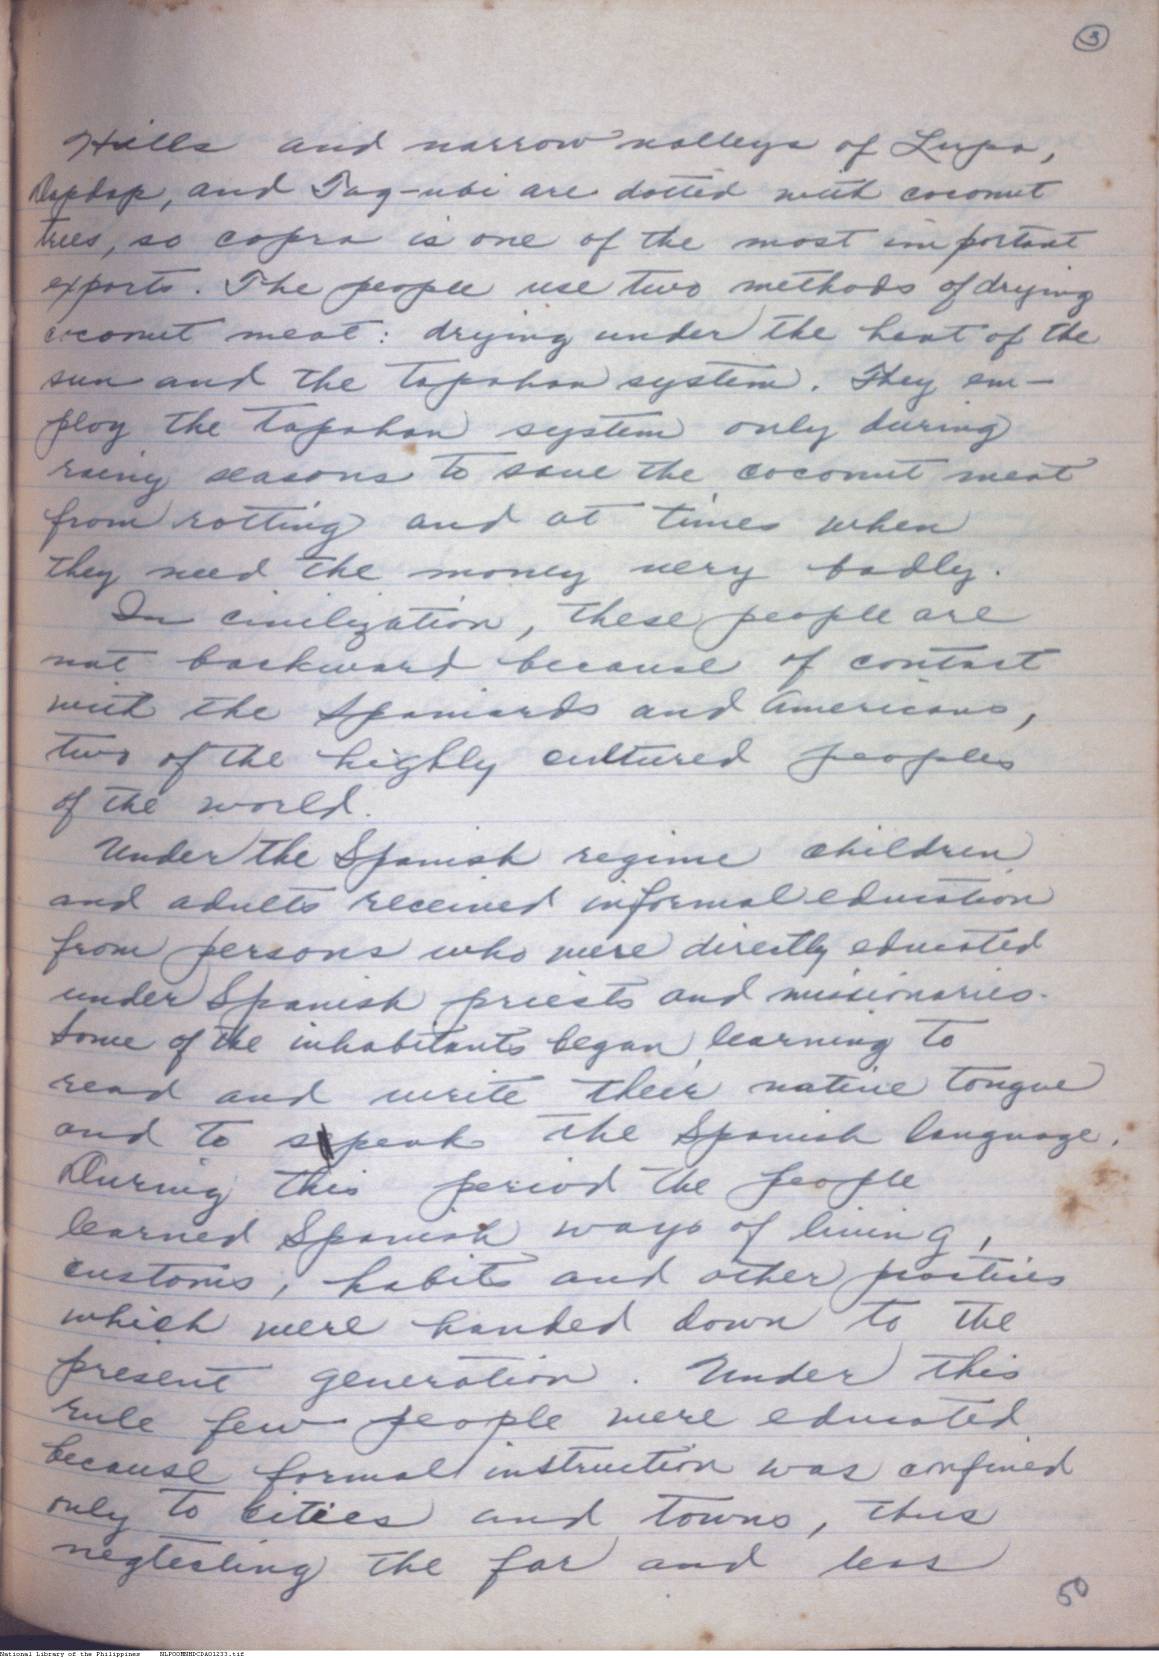 3
Hills and narrow valleys of Lupa,
Dapdap, and Tag-ubi are dotted with coconut
trees, so copra is one of the most important
exports. The people use two methods of drying
coconut meat: drying under the heat of the
sun and the tapahan system. They em-
ploy the tapahan system only during
rainy seasons to save the coconut meat
from rotting and at times when
they need the money very badly.
In civilization, these people are
not backward because of contact
with the Spaniards and Americans,
two of the highly cultured peoples
of the world.
Under the Spanish regime children
and adults received informal education
from persons who were directly educated
under Spanish priests and missionaries.
Some of the inhabitants began learning to
read and write their native tongue
and to speak the Spanish language.
During this period the people
learned Spanish ways of living,
customs, habits and other practices
which were handed down to the
present generation. Under this
rule few people were educated
because formal instruction was confined
only to cities and towns, thus
neglecting the far and less
50
National Library of the Philippines NLPOOMNHDCDA01233.tif